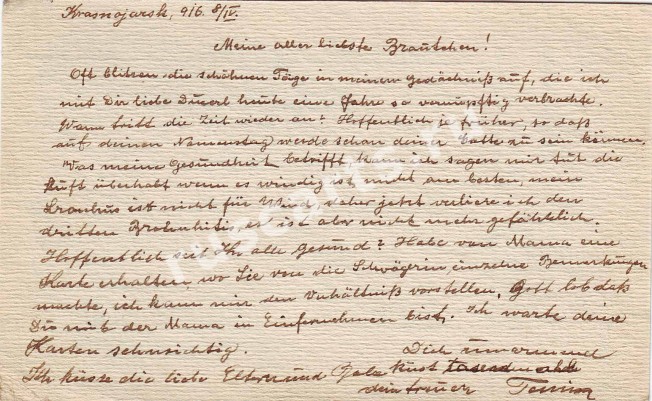 Krasnojarsk, 916. 8/IV.
Meine aller liebste Brautchen!
Oft blitzen die schöhnen Täge in meinem Gedächtniß auf, die ich
mit Dir liebe heute eine Jahre so vernüpftig verbrachte.
Wann tritt die Zeit wieder an? Hoffentlich je früher, so daß
auf deinen Namenstag werde schon deiner Gatte zu sein können.
Was meine Gesundheit betrifft, kann ich sagen mir tut die
Luft überhabt wenn es windig ist nicht am besten, mein
ist nicht für Wind, daher jetzt verliere ich den
dritten es ist aber nicht mehr gefährlich.
Hoffentlich seit Ihr alle gesund? Habe von Mama eine
Karte erhalten, wo Sie von die Schwägerin einzelne Bemerkungen
machte, ich kann mir den Verhältniß vorstellen. Gott lob daß
Du mit der Mama in Einfernehmen bist. Ich warte deine
Karten sehnsichtig.
Dich umarmend
Ich küsse die liebe Eltern und küsst tausendmahl
dein treuer